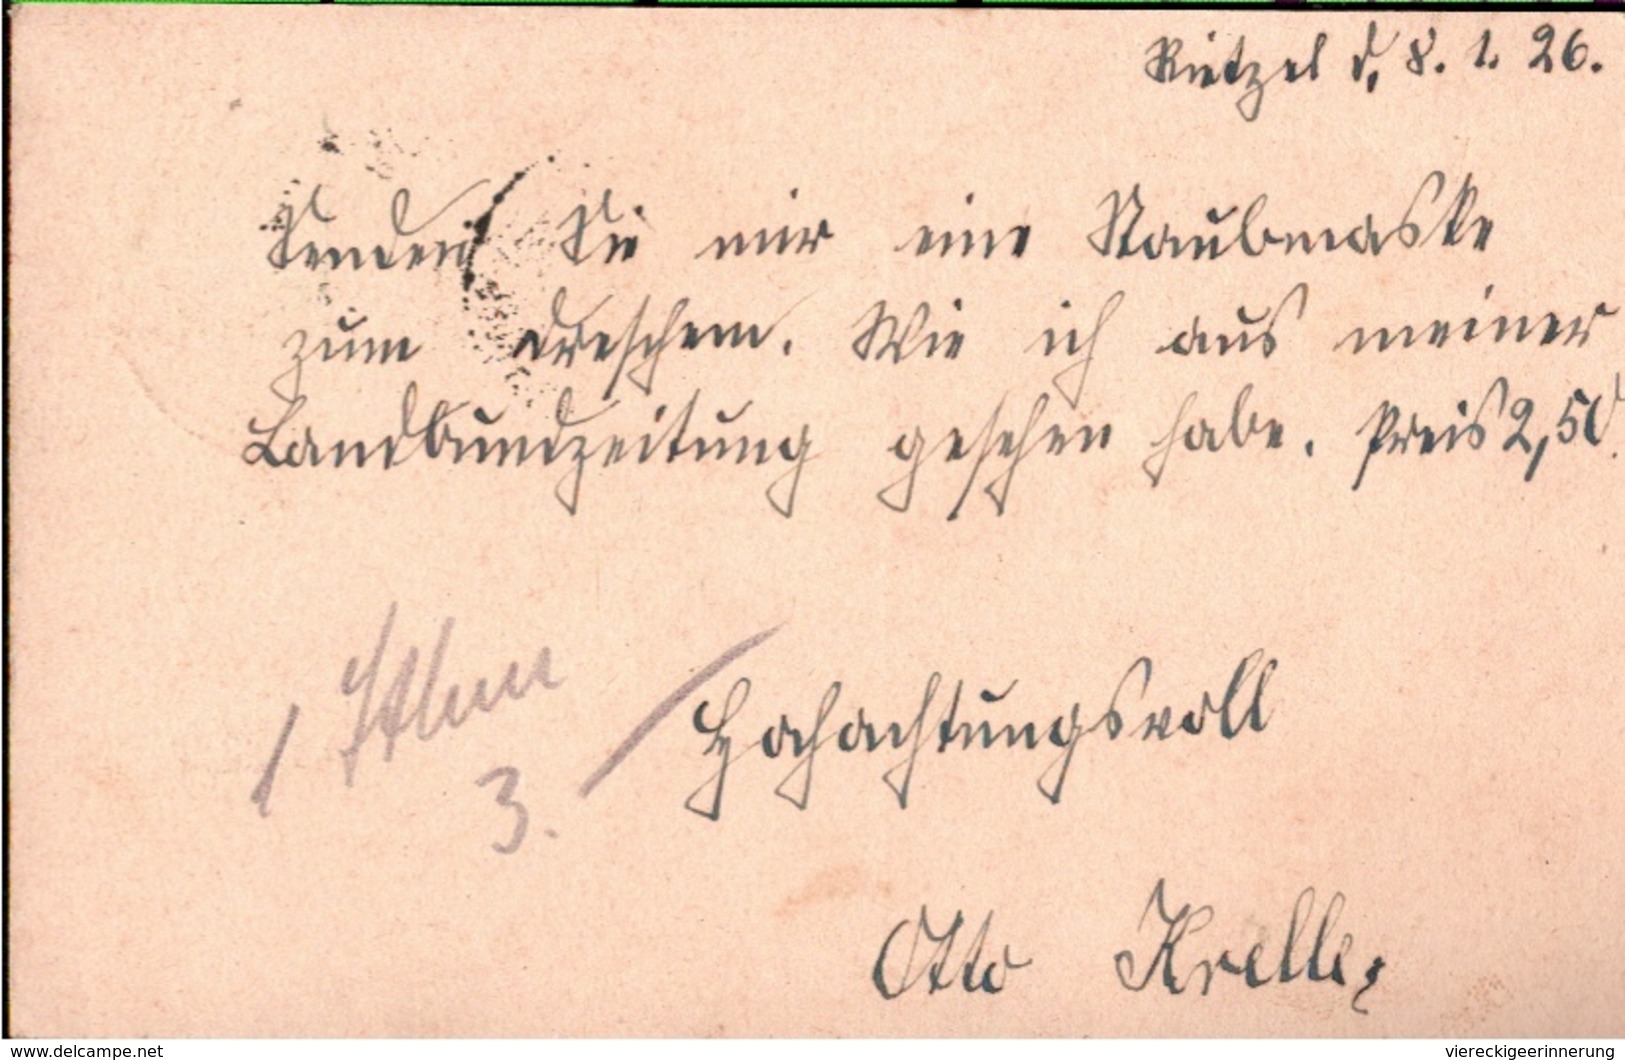 Rietzel d. 8. 1. 26.
Senden Sie mir eine Staubmaske
zum dreschen. Wie ich aus meiner
Landbundzeitung gesehen habe. Preis 2,50.
1
3.
Hochachtungsvoll
Otto Krelle
www.delcampe.net
viereckigeerinnerung